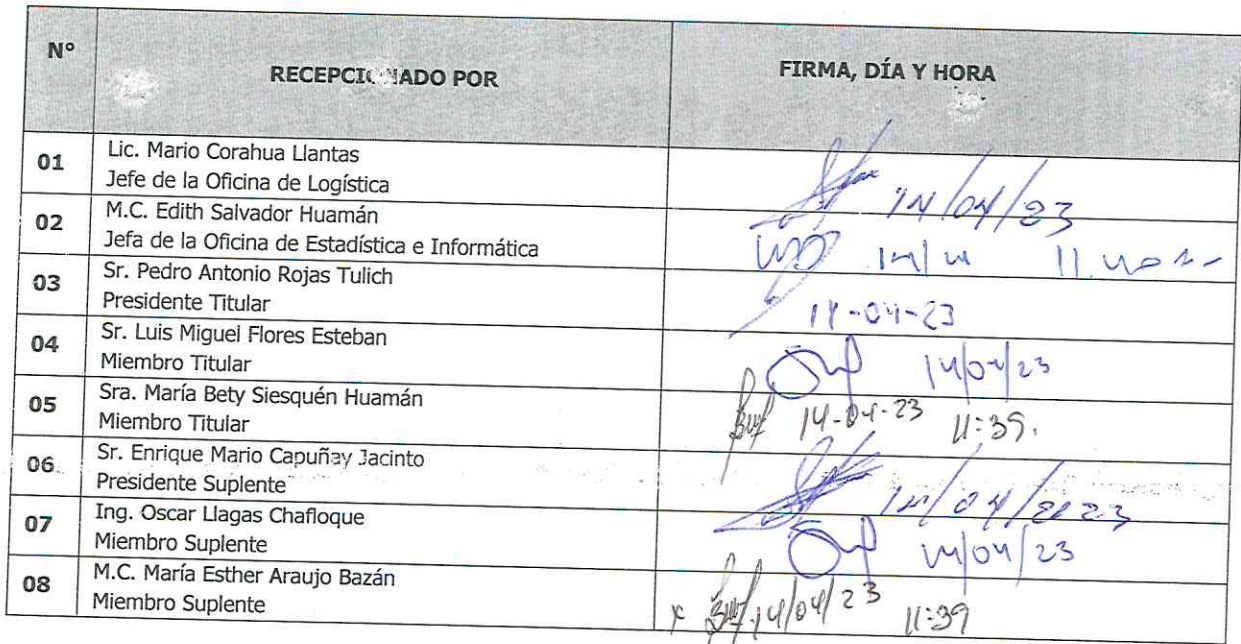 N°
RECEPCIONADO POR
FIRMA, DÍA Y HORA
01
Lic. Mario Corahua Llantas
Jefe de la Oficina de Logística
14/04/23
02
M.C. Edith Salvador Huamán
Jefa de la Oficina de Estadística e Informática
03
Sr. Pedro Antonio Rojas Tulich
Presidente Titular
14-04-23
04
Sr. Luis Miguel Flores Esteban
Miembro Titular
14/04/23
05
Sra. María Bety Siesquén Huamán
Miembro Titular
14-04-23 11:39.
06
Sr. Enrique Mario Capuñay Jacinto
Presidente Suplente
14/04/2023
07
Ing. Oscar Llagas Chafloque
Miembro Suplente
14/04/23
08
M.C. María Esther Araujo Bazán
Miembro Suplente
x 14/04/23 11:39